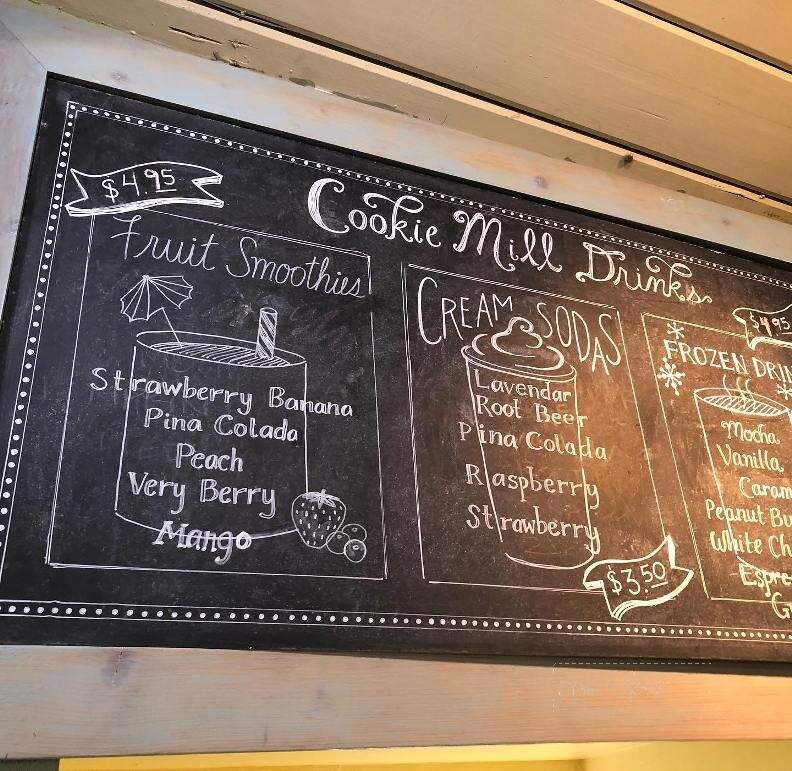 Cookie Mill Drinks
$4.95
Fruit Smoothies
Strawberry Banana
Pina Colada
Peach
Very Berry
Mango
CREAM SODAS
Lavendar
Root Beer
Pina Colada
Raspberry
Strawberry
$3.50
$4.95
FROZEN DRIN
Mocha
Vanilla
Caram
Peanut Bu
White Ch
Espre
G